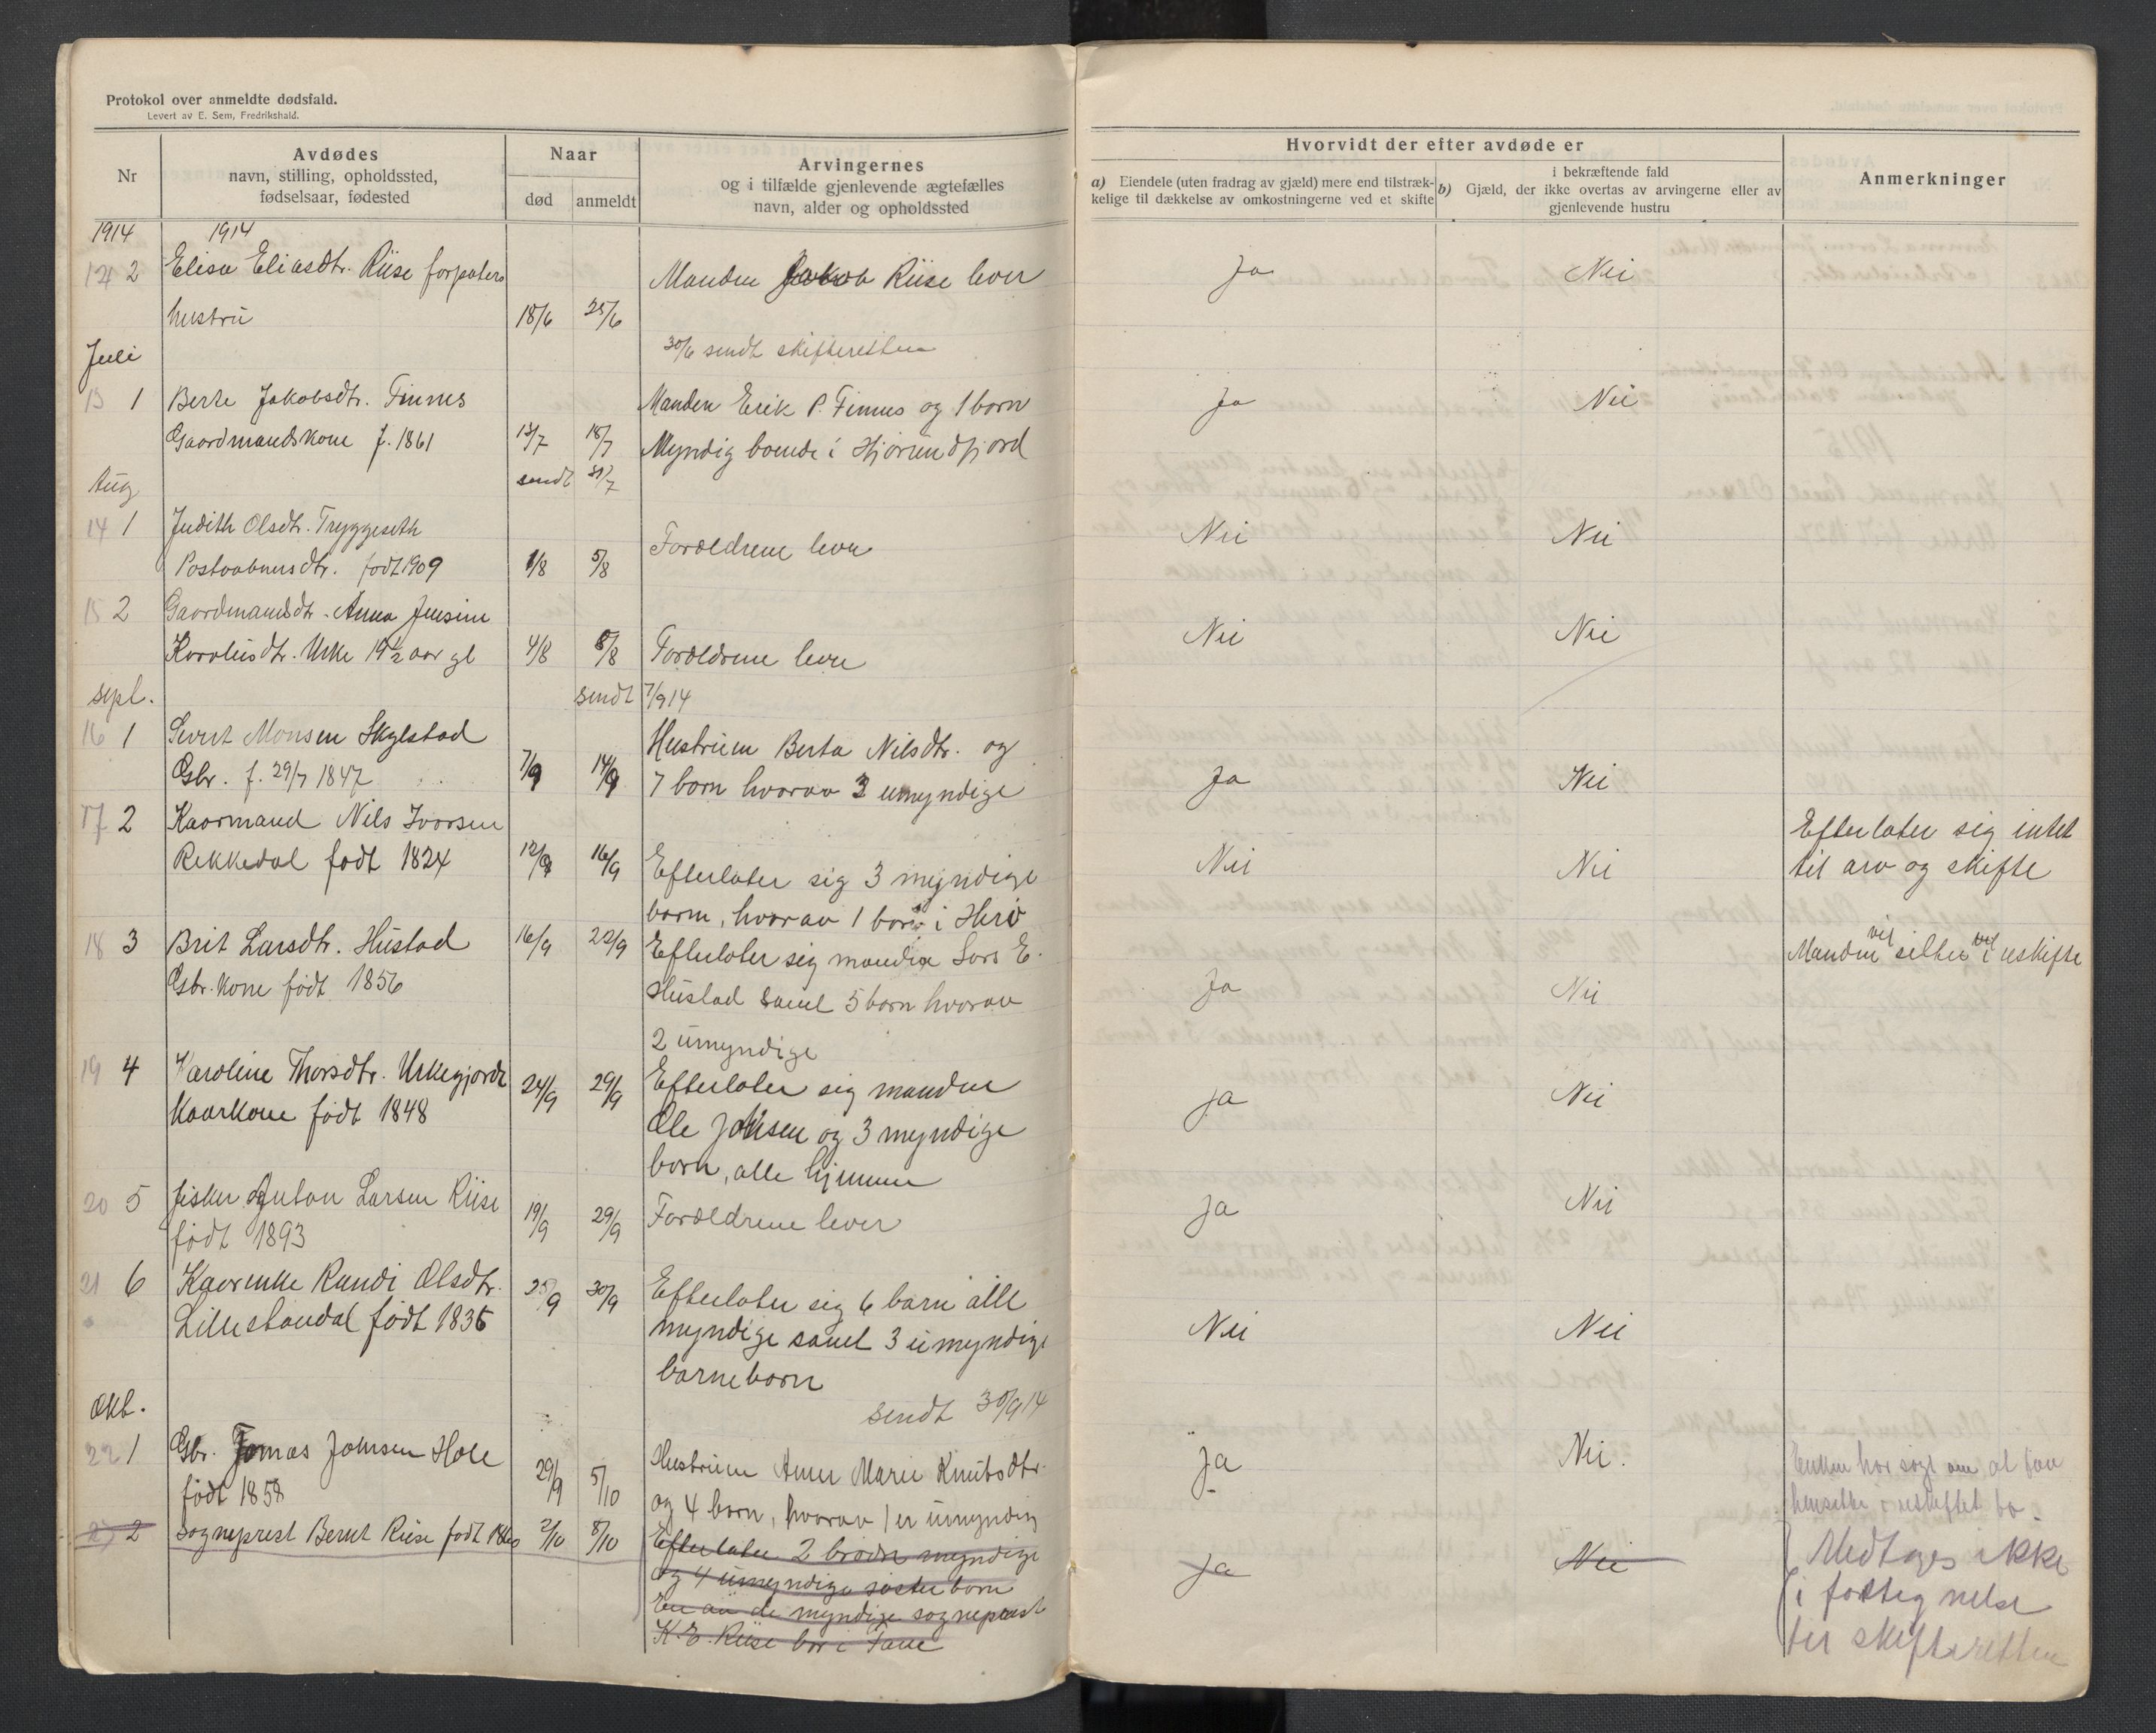 Protokol over anmeldte dødsfald.
Levert av E. Sem, Fredrikshald.
Nr
Avdødes
navn, stilling, opholdssted,
fødselsaar, fødested
Naar
død
anmeldt
Arvingernes
og i tilfælde gjenlevende ægtefælles
navn, alder og opholdssted
Hvorvidt der efter avdøde er
a) Eiendele (uten fradrag av gjæld) mere end tilstræk-
kelige til dækkelse av omkostningerne ved et skifte
i bekræftende fald
b) Gjæld, der ikke overtas av arvingerne eller av
gjenlevende hustru
Anmerkninger
1914 1914
12 2 Elisa Eliasdtr. Riise forpaters Manden Jakob Riise lever Ja Nei
hustru 18/6 25/6
30/6 sendt skifteretten
Juli
13 1 Berte Jakobsdtr. Finnes Manden Erik P. Finnes og 1 born Ja Nei
Gaardmandskone f. 1861 13/7 18/7 Myndig boende i Hjørundfjord
sendt 31/7
Aug
14 1 Judith Olsdtr. Tryggeseth Nei Nei
Postaabnersdtr. født 1909 1/8 5/8 Forældrene lever
15 2 Gaardmandsdtr. Anna Jensine Nei Nei
Karolusdtr. Urke 19½ aar gl 4/8 8/8 Forældrene lever
sept. sendt 7/9 14
16 1 Sivert Monsen Skylstad Hustruen Berta Nilsdtr. og
Gbr. f. 29/7 1847 7/9 14/9 7 born hvorav 3 umyndige Ja Nei
17 2 Kaarmand Nils Ivarsen Efterlater sig intet
Rekkedal født 1824 12/9 16/9 Efterlater sig 3 myndige Nei Nei til arv og skifte
born, hvorav 1 bor i Herø
18 3 Brit Larsdtr. Hustad 16/9 22/9 Efterlater sig manden Lars E. Manden vil sitte i uskifte
Gbr. kone født 1856 Hustad samt 5 born hvorav Ja Nei
2 umyndige
19 4 Karoline Thorsdtr. Urkegjerde 24/9 29/9 Efterlater sig manden Ja Nei
Kaarkone født 1848 Ole Johsen og 3 myndige
born, alle hjemme
20 5 fisker Anton Larsen Riise 19/9 29/9 Forældrene lever Ja Nei
født 1893
21 6 Kaarenke Randi Olsdtr. 25/9 30/9 Efterlater sig 6 barn alle
Lillestandal født 1836 myndige samt 3 umyndige Nei Nei
barneborn
sendt 30/9 14
Okt.
22 1 Gbr. Jonas Johnsen Hole 29/9 5/10 Hustruen Anne Marie Knutsdtr. Ja Nei. Enken har søgt om at faa
født 1858 og 4 born, hvorav 1 er umyndig hensitte i uskiftet bo.
23 2 Sogneprest Bernt Riise født 2/10 8/10 Efterlater 2 brødre myndige Ja Nei Medtages ikke
og 4 umyndige søster born i fortegnelse
En av de myndige sogneprest til skifteretten
K. E. Riise bor i Fane